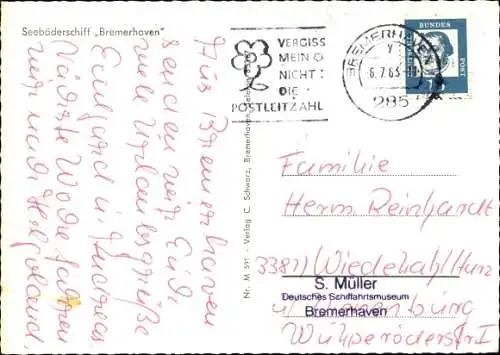 Seebäderschiff „Bremerhaven“
Aus Bremerhaven
senden wir Euch
viele Urlaubsgrüße
Eckhard u. Andreas
Nächste Woche fahren
wir nach Helgoland.
Nr. M 591 - Verlag C. Schwarz, Bremerhaven,
VERGISS
MEIN
NICHT:
DIE
POSTLEITZAHL
BREMERHAVEN
6.7.63
285
DEUTSCHE BUNDESPOST
Familie
Herm. Reinhardt
33811 Wiedelah/Harz
S. Müller
Deutsches Schiffahrtsmuseum
Bremerhaven
Wülperöderstr. I